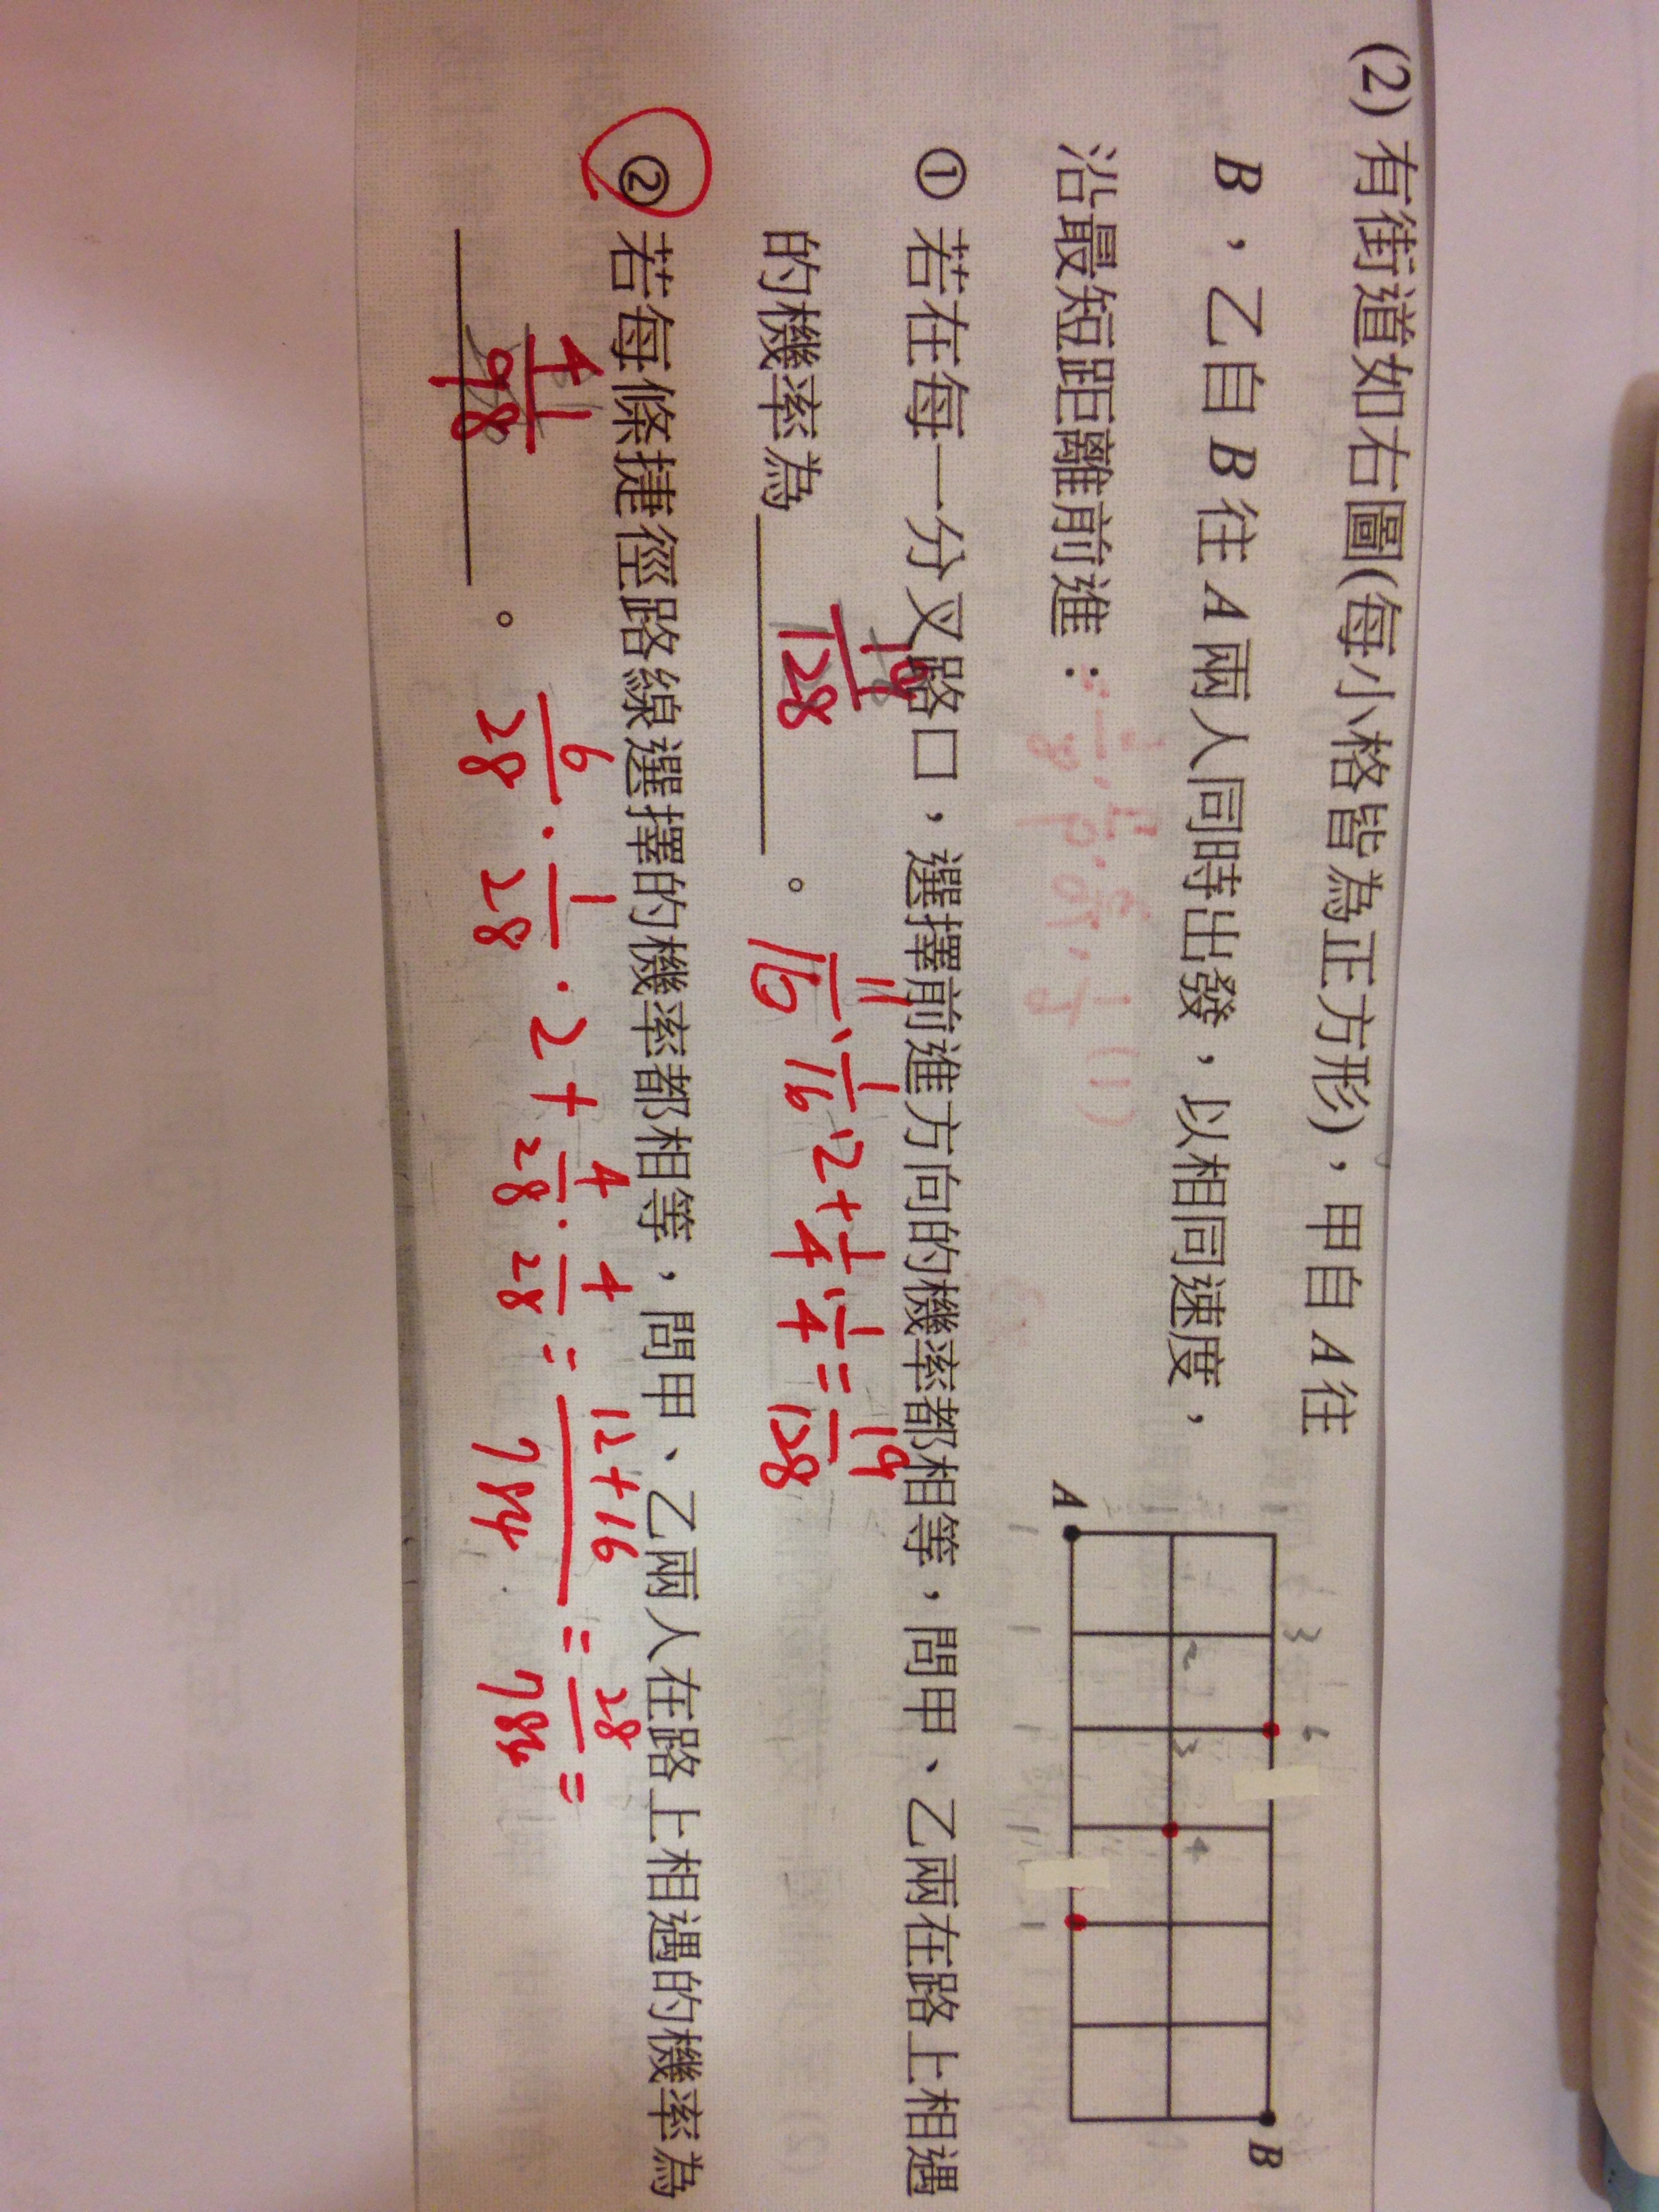 (2) 有街道如右圖(每小格皆為正方形)，甲自 A 往
B，乙自 B 往 A 兩人同時出發，以相同速度，
沿最短距離前進：
A
B
3
2
3
4
① 若在每一分叉路口，選擇前進方向的機率都相等，問甲、乙兩在路上相遇
的機率為 19/128 。 11/16 · 1/16 · 2 + 1/4 · 1/4 = 19/128
② 若每條捷徑路線選擇的機率都相等，問甲、乙兩人在路上相遇的機率為
。 6/28 · 1/28 · 2 + 4/28 · 4/28 = 12+16/784 = 28/784 =